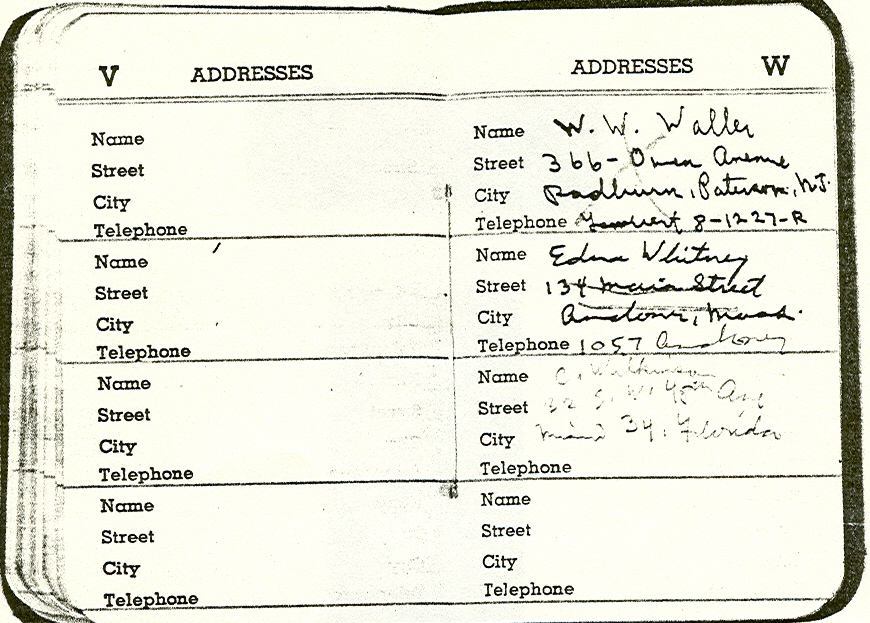 V ADDRESSES
Name
Street
City
Telephone
Name
Street
City
Telephone
Name
Street
City
Telephone
Name
Street
City
Telephone
ADDRESSES W
Name W. W. Waller
Street 366- Owen Avenue
City Radburn, Paterson, N.J.
Telephone Lambert 8-1227-R
Name Edna Whitney
Street 134 Main Street
City Andover, Mass.
Telephone 1057 Andover
Name C. Wilkinson
Street 32 S. W. Ave
City Miami 34, Florida
Telephone
Name
Street
City
Telephone